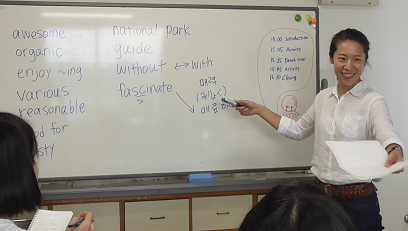 awesome
organic
enjoy ~ing
various
reasonable
national park
guide
without ↔ with
fascinate
매력
매료
15:00 Introduction
15:05 Activity
15:35 Break time
15:45 Activity
16:30 Closing